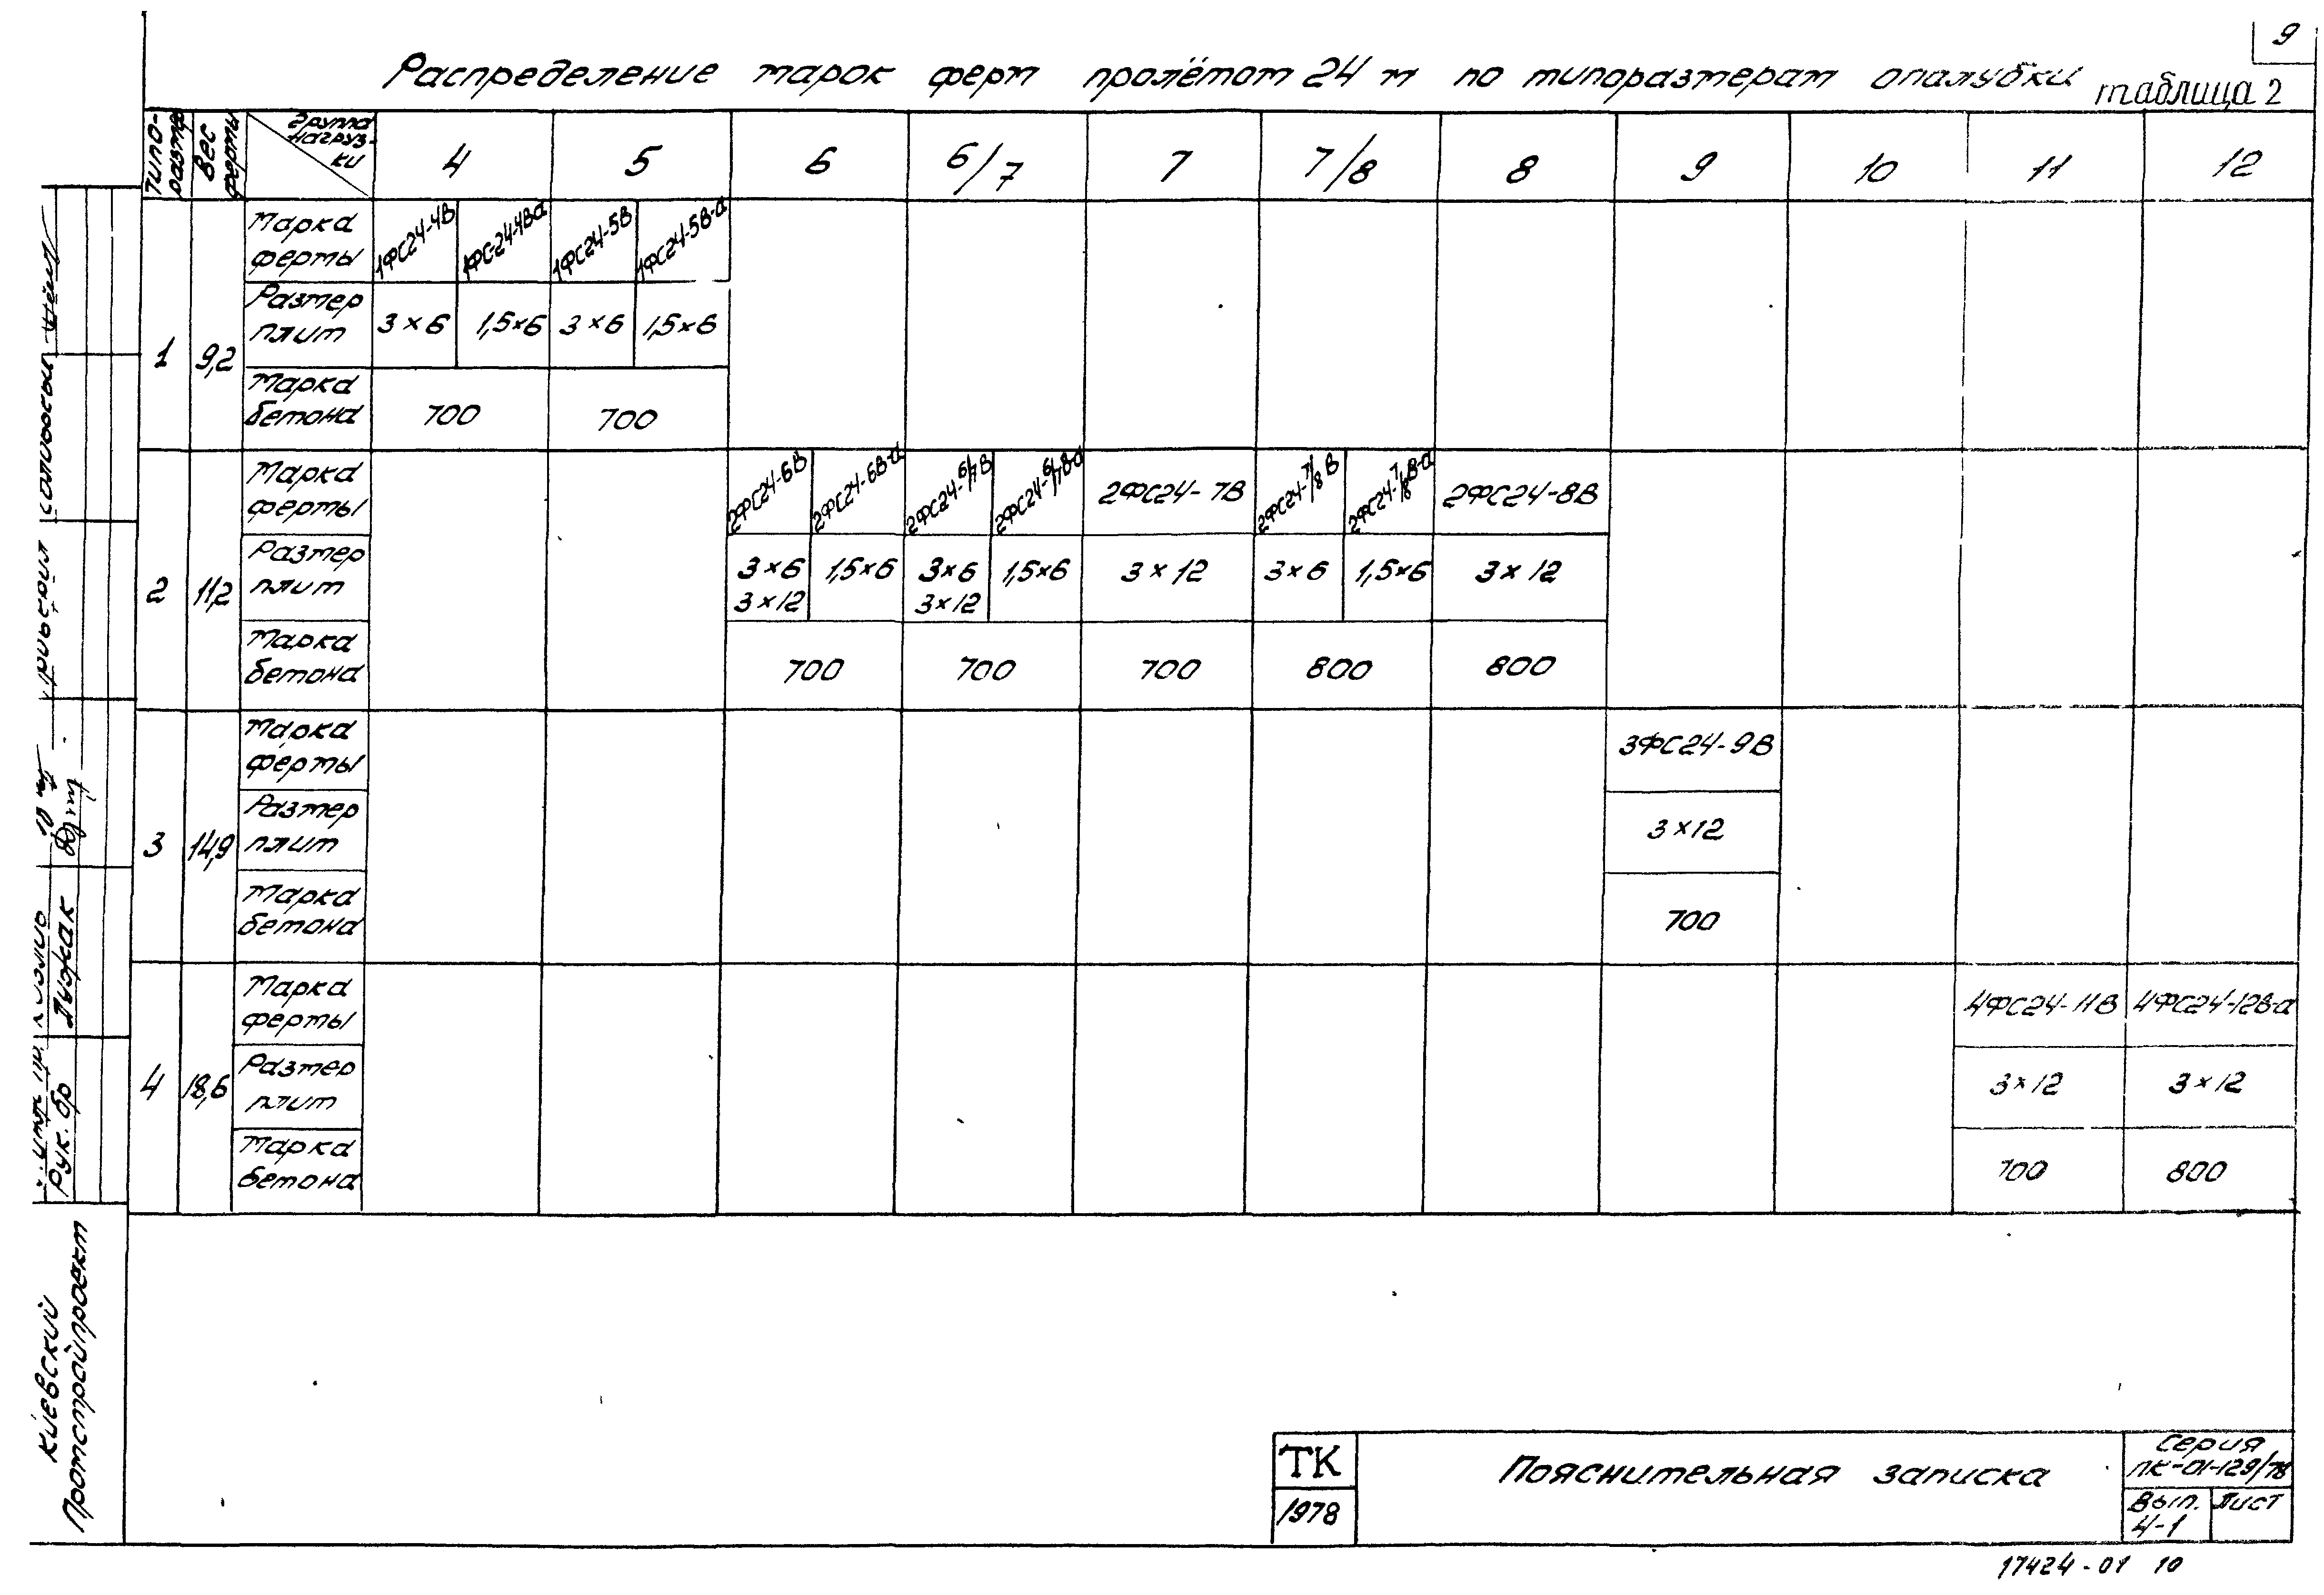 9
Распределение марок ферм пролётом 24 м по типоразмерам опалубки
таблица 2
Типо-
размер
Вес
фермы
Группа
нагруз-
ки
4 5 6 6/7 7 7/8 8 9 10 11 12
1 9,2
Марка
фермы
1ФС24-4В 1ФС24-4Ва 1ФС24-5В 1ФС24-5В-а
Размер
плит
3×6 1,5×6 3×6 1,5×6
Марка
бетона
700 700
2 11,2
Марка
фермы
2ФС24-6В 2ФС24-6В-а 2ФС24-6/7В 2ФС24-6/7В-а 2ФС24-7В 2ФС24-7/8В 2ФС24-7/8В-а 2ФС24-8В
Размер
плит
3×6 1,5×6 3×6 1,5×6 3×12 3×6 1,5×6 3×12
3×12 3×12
Марка
бетона
700 700 700 800 800
3 14,9
Марка
фермы
3ФС24-9В
Размер
плит
3×12
Марка
бетона
700
4 18,6
Марка
фермы
4ФС24-11В 4ФС24-12В-а
Размер
плит
3×12 3×12
Марка
бетона
700 800
Рук. бр Пужак
Киевский
Промстройпроект
ТК
1978
Пояснительная записка
Серия
ПК-01-129/78
Вып. Лист
4-1
17424-01 10